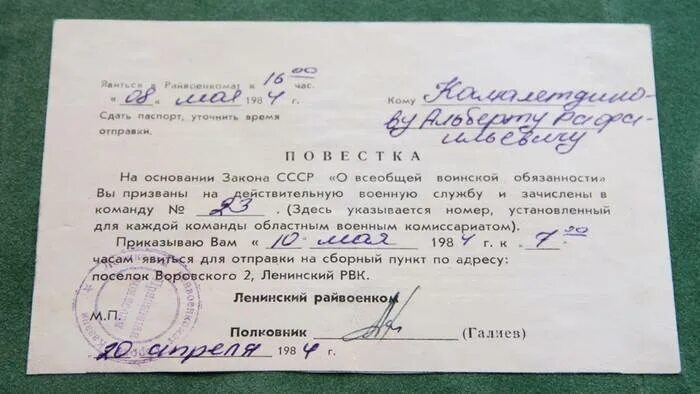 Явиться в Райвоенкомат к 16 00 час.
« 08 » мая 1984 г.
Сдать паспорт, уточнить время
отправки.
Кому Камалетдино-
ву Альберту Рафа-
ильевичу
ПОВЕСТКА
На основании Закона СССР «О всеобщей воинской обязанности»
Вы призваны на действительную военную службу и зачислены в
команду № 23 . (Здесь указывается номер, установленный
для каждой команды областным военным комиссариатом).
Приказываю Вам « 10 » мая 1984 г. к 7 00
часам явиться для отправки на сборный пункт по адресу:
поселок Воровского 2, Ленинский РВК.
Ленинский райвоенком
М.П.
Полковник (Галиев)
20 апреля 1984 г.